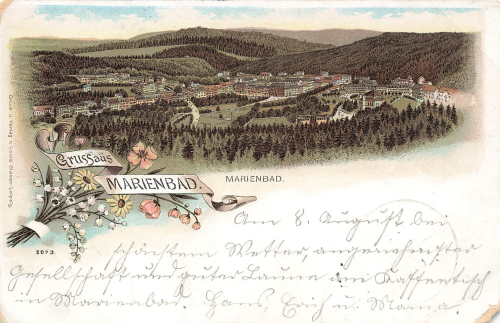 Gruss aus
MARIENBAD.
MARIENBAD.
Druck u. Verlag v. Louis Glaser, Leipzig.
2673.
Am 8. August bei
schönstem Wetter, angenehmster
Gesellschaft und guter Laune am Kaffeetisch
in Marienbad. Hans, Erich u. Mama.